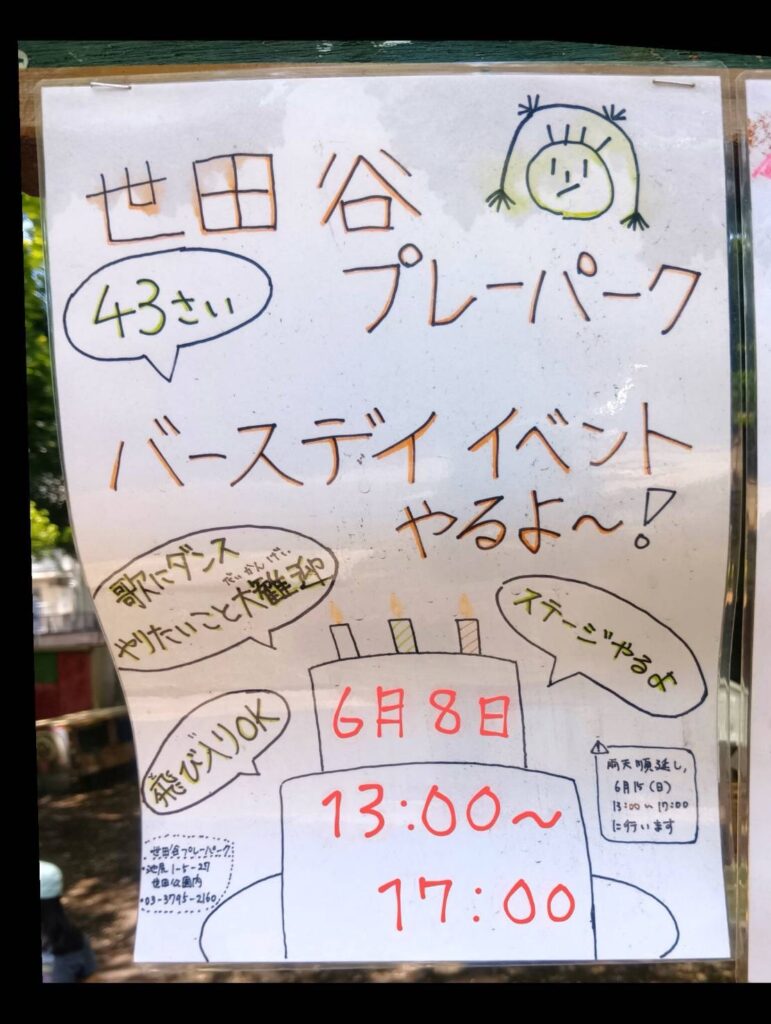 世田谷
プレーパーク
43さい
バースデイ イベント
やるよ〜!
歌にダンス
やりたいこと大歓迎
だいかんげい
ステージやるよ
飛び入りOK
6月8日
13:00〜
17:00
雨天順延し、
6月15(日)
13:00〜17:00
に行います
世田谷プレーパーク
・池尻1-5-27
世田公園内
・03-3795-2160